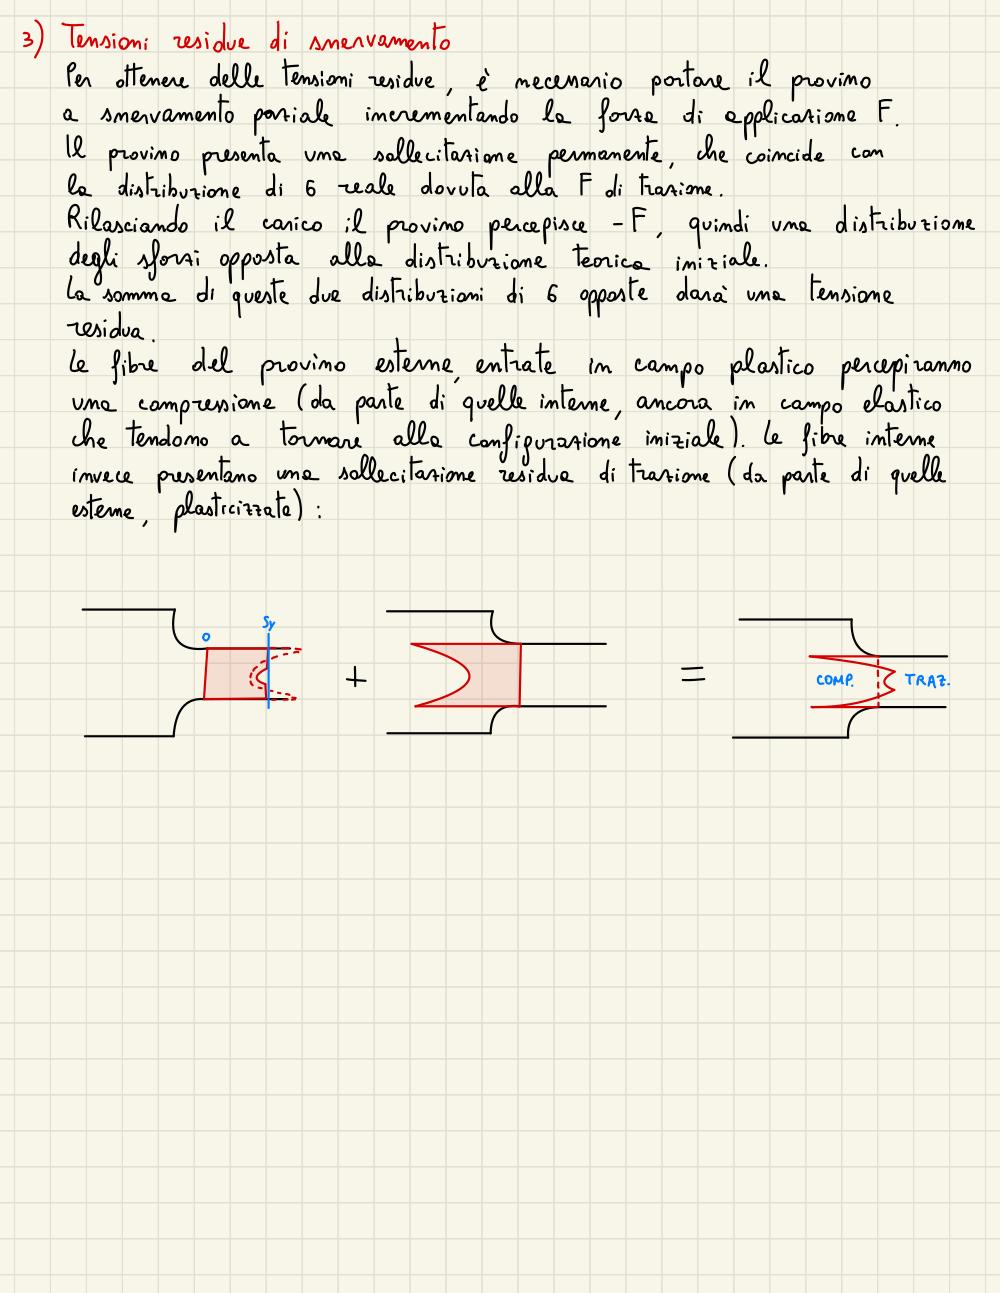 3) Tensioni residue di snervamento
Per ottenere delle tensioni residue, è necessario portare il provino
a snervamento parziale incrementando la forza di applicazione F.
Il provino presenta una sollecitazione permanente, che coincide con
la distribuzione di σ reale dovuta alla F di trazione.
Rilasciando il carico il provino percepisce -F, quindi una distribuzione
degli sforzi opposta alla distribuzione teorica iniziale.
La somma di queste due distribuzioni di σ opposte darà una tensione
residua.
Le fibre del provino esterne, entrate in campo plastico percepiranno
una compressione (da parte di quelle interne, ancora in campo elastico
che tendono a tornare alla configurazione iniziale). Le fibre interne
invece presentano una sollecitazione residua di trazione (da parte di quelle
esterne, plasticizzate):
0 Sy
+ =
COMP. TRAZ.